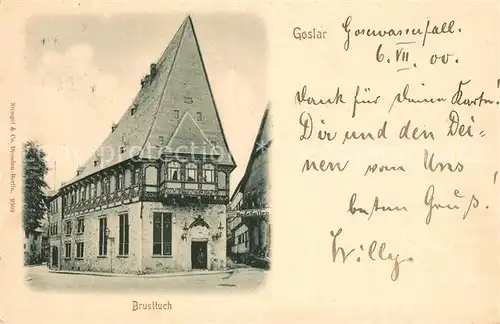 Goslar
Gosewasserfall.
6. VII. 00.
Dank für Deine Karte!
Dir und den Dei-
nen vom Uns
besten Gruß!
Willy.
Stengel & Co. Dresden-Berlin.
Brusttuch